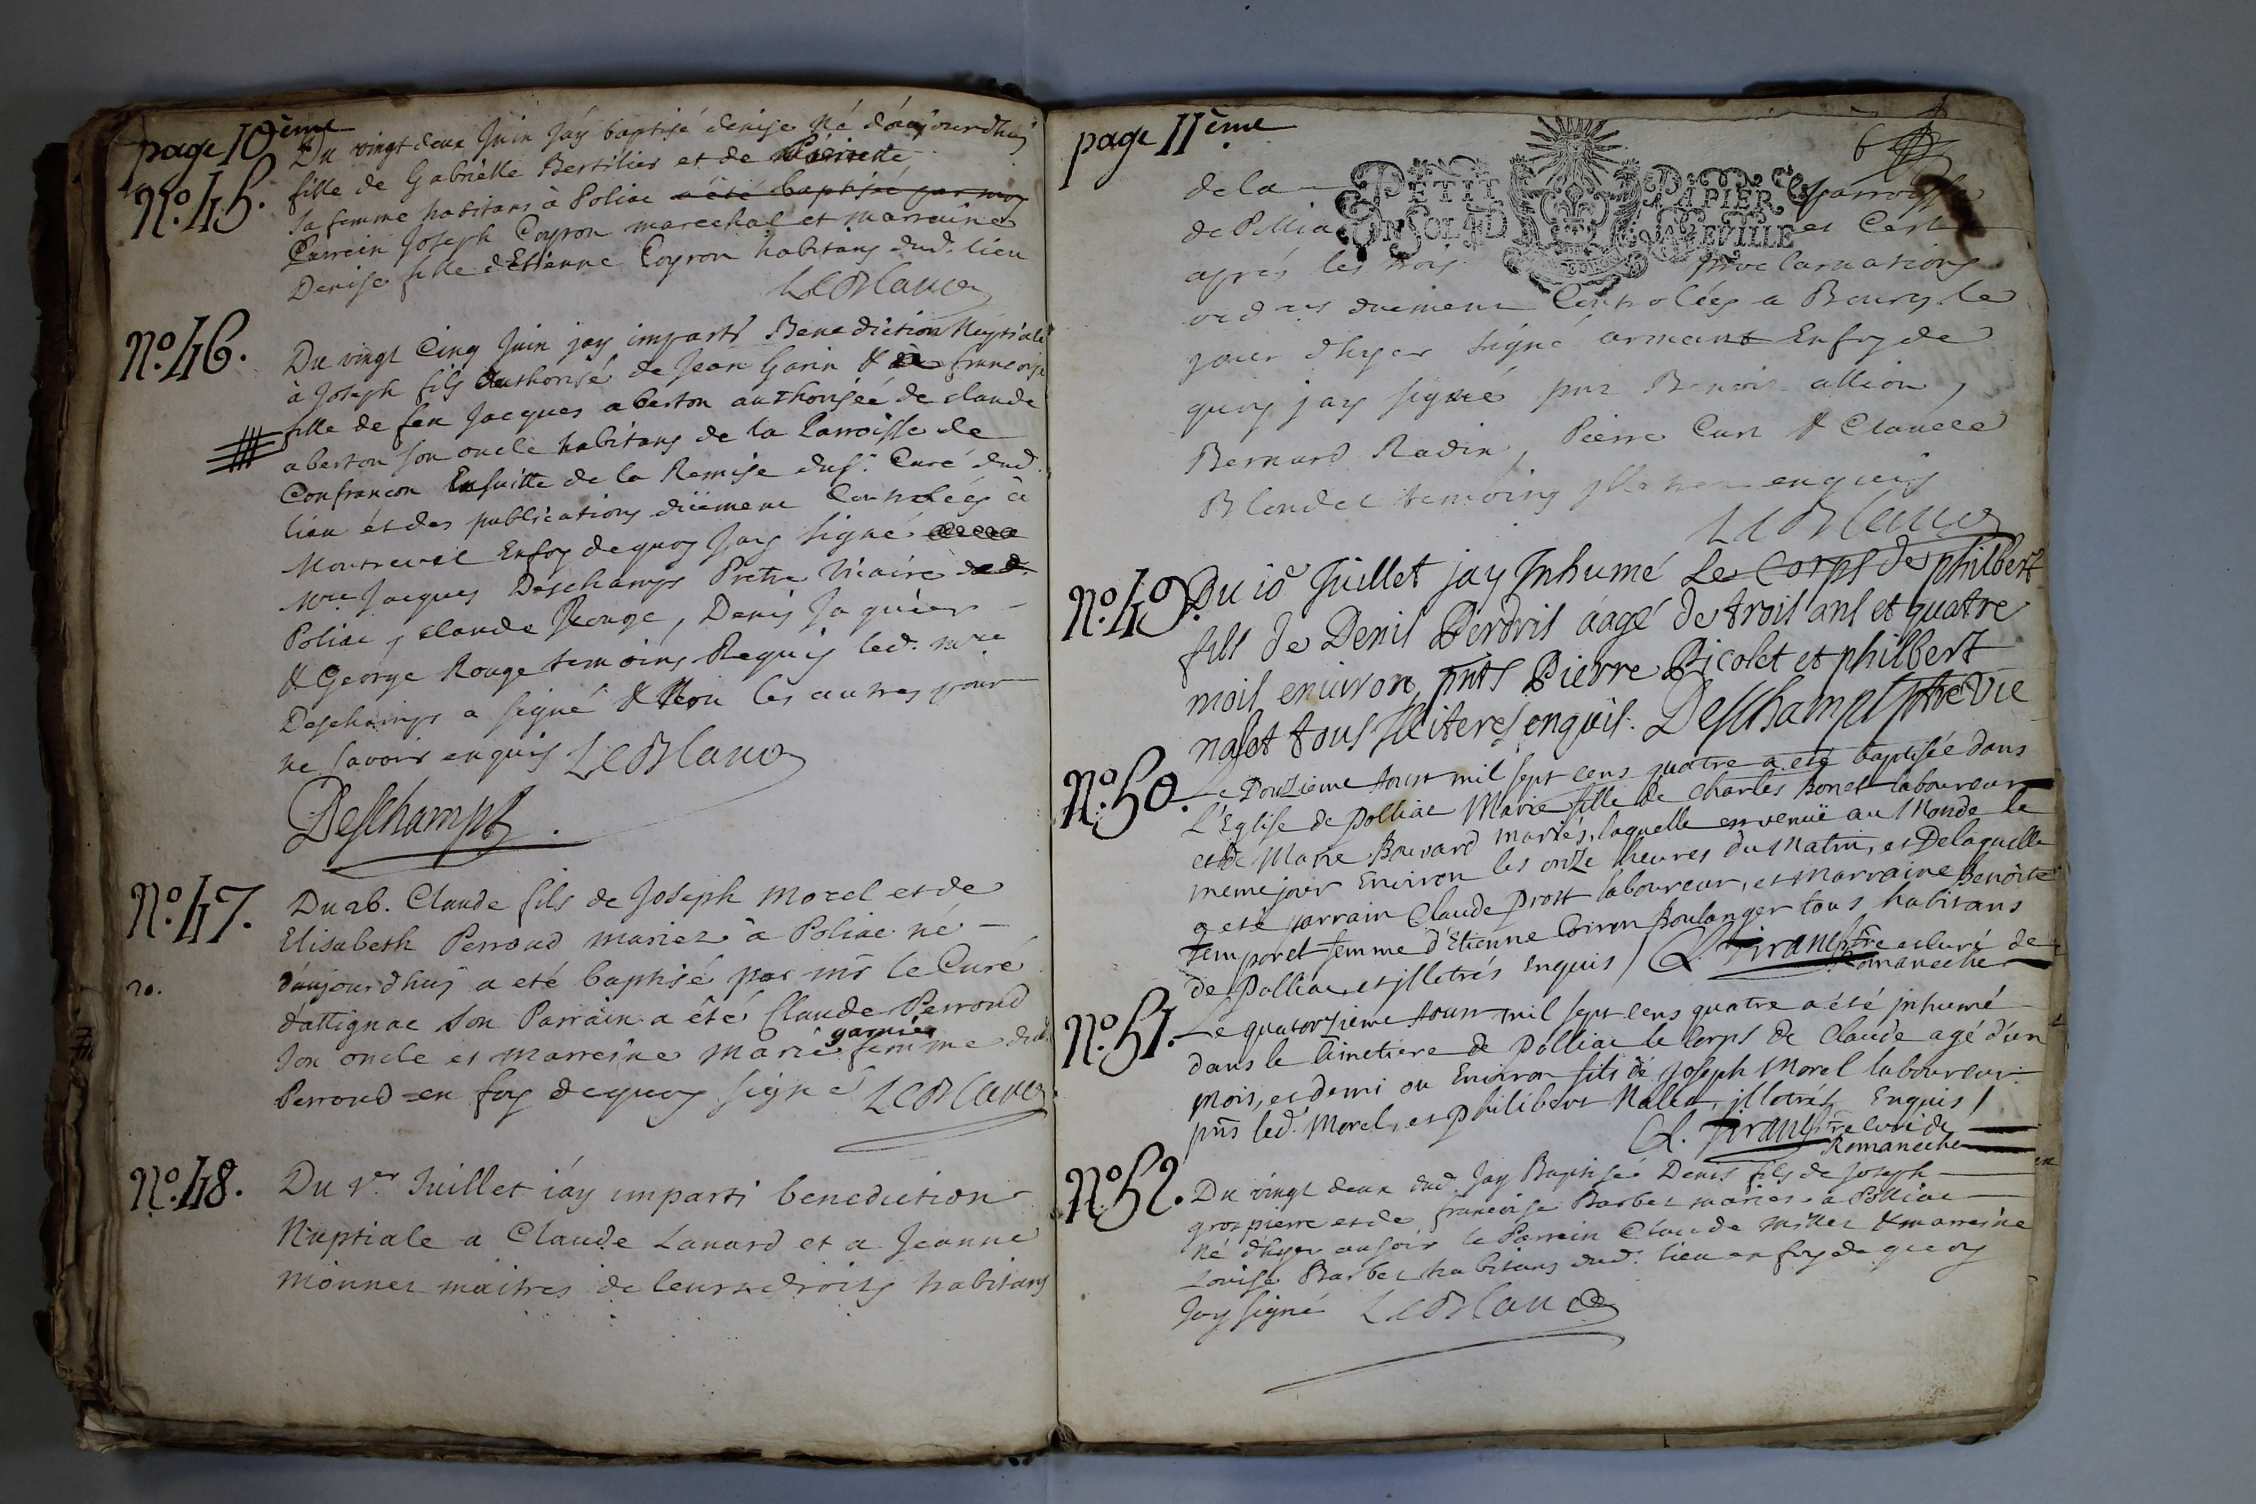 page 10ème
N.º 45.
Du vingt deux Juin J'ay baptisé denise né d'aujourdhuj
fille de Gabrielle Bertilier et de
sa femme habitans à Poliac a été baptisé par moy
Parrein Joseph Coyron marechal et marraine
Denise fille d'Etienne Coyron habitans dud. lieu
LeBlanc
N.º 46.
Du vingt Cinq Juin jay imparti Benediction Nuptiale
à Joseph fils authorisé de Jean Garin & à francoise
fille de feu Jacques aberton authorisée de claude
aberton son oncle habitans de la Parroisse de
Confrancon Ensuitte de la Remise du Sr. Curé dud.
lieu et des publications düement Controlées à
Montrevel Enfoy dequoy Jay signé
Mre Jacques Deschamps Pretre Vicaire dud.
Poliac, claude Rouge, Denis Jaquier
& George Rouge temoins Requis led. mre
Deschamps a signé & Non les autres pour
ne savoir enquis LeBlanc
Deschamps.
N.º 47.
20.
Du 26. Claude fils de Joseph Morel et de
Elisabeth Perroud mariez à Poliac né
d'aujourdhuy a eté baptisé par mr le Curé
d'attignac son Parrain a été Claude Perroud
garnier
son oncle et marreine Marie femme dud.
Perroud en foy dequoy signé LeBlanc.
N.º 48.
Du 1.er Juillet j'áy imparti benediction
Nuptiale a Claude Lanard et a Jeanne
Monnet maitres de leurs droits habitans
page 11ème
6
PETIT PAPIER
UN SOL LAFEVILLE
de la parroisse
de Pollia et Cest
aprés les trois proclamations
ord.res duement Controlées a Bourg le
jour d'hyer signé armant Enfoy de
quoy jay signé pnz Benoit allion,
Bernard Radin, Pierre Curt & Claude
Blondet temoins enquis
LeBlanc
N.º 49.
Du 10 Juillet jay Inhumé Le Corps de philbert
fils de Denis Perdris aagé de trois ans et quatre
mois enuiron, pnts Pierre Picolet et philbert
nalet tous Illiteres enquis. Deschamps ptre Vic
N.º 50.
Le Douzieme Aoust mil sept cens quatre a eté baptisée dans
L'Eglise de Polliac Marie fille de Charles Bonet laboureur
et de Marie Bouvard mariés, laquelle est venuë au Monde le
meme jour Environ les onze heures du Matin, et De laquelle
a eté parrain Claude Prost laboureur, et Marraine Benoite
Temporel femme d'Etienne Coiron Boulanger tous habitans
de Polliac, et jlletrés Enquis / Q. Pirand ptre et Curé de
Romaneche
N.º 51.
Le quatorzieme Aoust mil sept cens quatre a été jnhumé
dans le Cimetiere de Polliac le Corps de Claude agé d'un
mois, et demi ou Environ fils de Joseph Morel laboureur.
pns led. Morel, et Philibert Nalet, jlletrés Enquis /
Q. Pirand ptre Curé de
Romaneche
N.º 52.
Du vingt deux dud. Jay Baptisé Denis fils de Joseph
grospierre et de francoise Barbet mariez a Polliac
né d'hyer au soir le Parrein Claude Millet & marreine
Louise Barbet habitans dud. lieu en foy de quoy
Jay signé LeBlanc